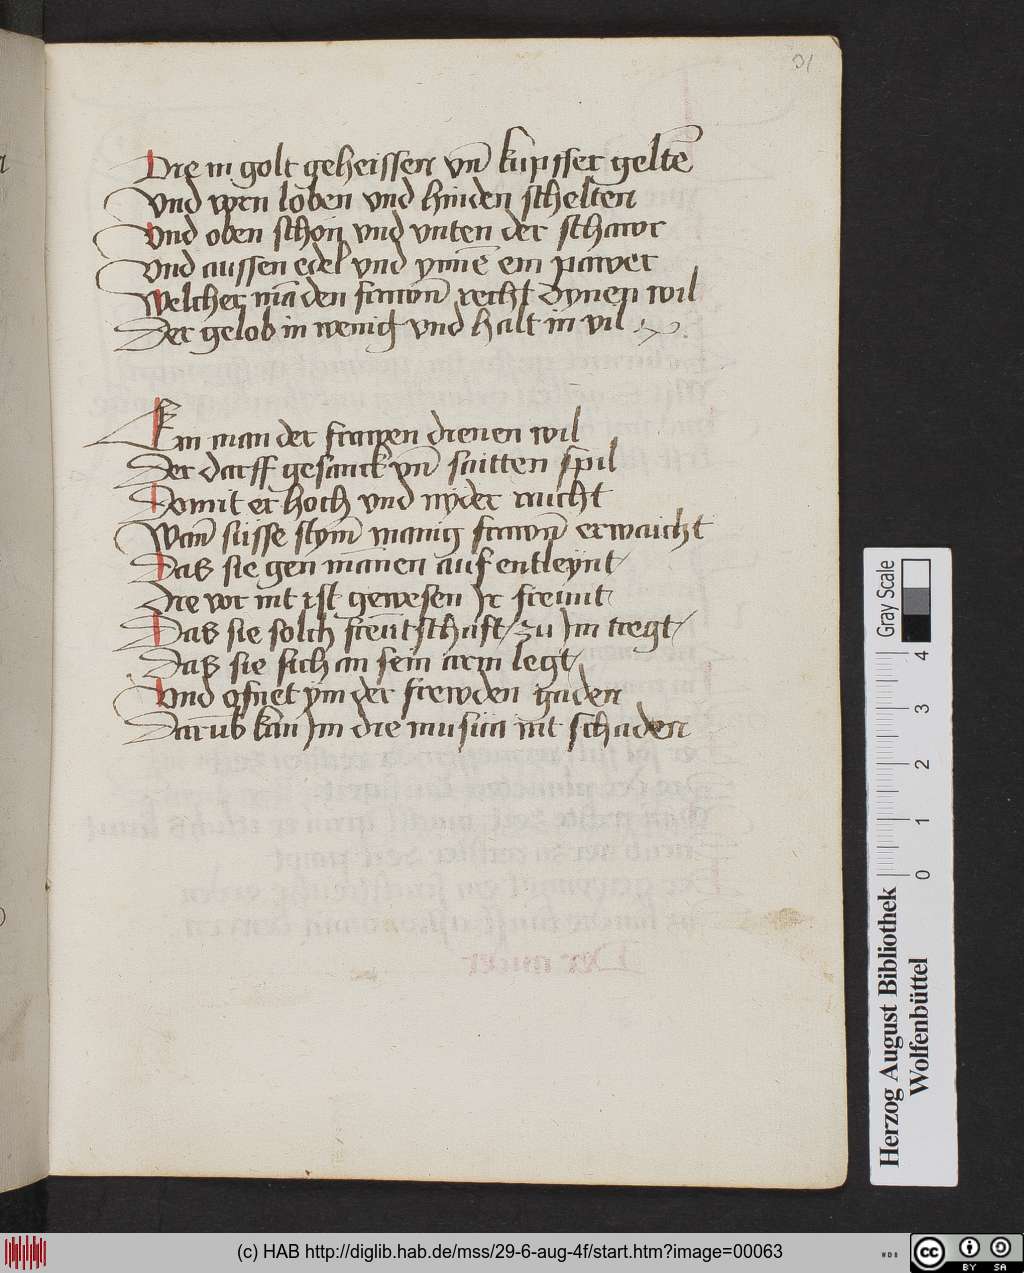 31
Die in golt geheissen vñ kupffer geltē
Vnd vorn loben vnd hinden schelten
Vnd oben schon vnd vnten der schawr
Vnd aussen edel vnd ynnē ein pawer
Welcher mā den frawñ recht dynen wil
Der gelob in wenig vnd halt in vil
Ein man der frawen dienen wil
Der darff gesanck vñ saitten spil
Domit er hoch vnd nyder raicht
Wañ süsse stym̄ manig frawñ erwaicht
Das sie gen mānen auf entleynt
Die vor nit ist gewesen Ir freunt
Das sie solch freūtschaft zu Im tregt
Das sie sich an sein arm legt
Vnd ofnet ym der frewden gaden
Darūb kan Im die musica nit schaden
Gray Scale
0 1 2 3 4
Herzog August Bibliothek
Wolfenbüttel
(c) HAB http://diglib.hab.de/mss/29-6-aug-4f/start.htm?image=00063
cc BY SA